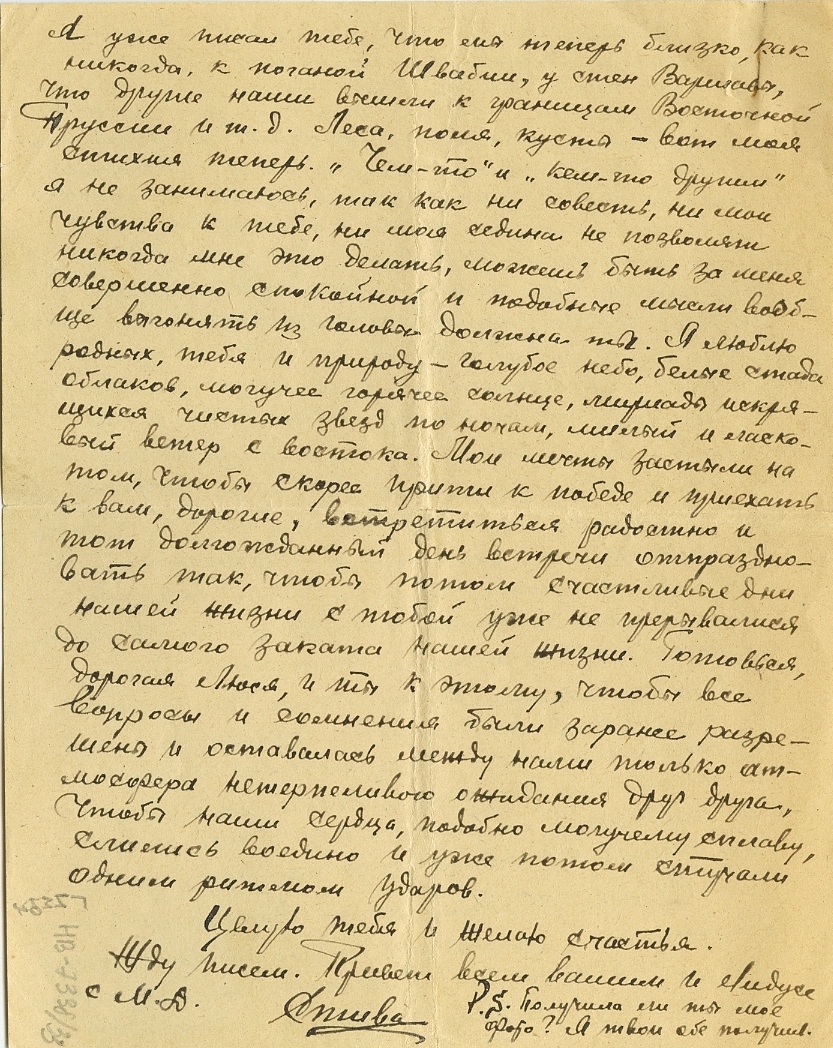 Я уже писал тебе, что мы теперь близко, как
никогда, к поганой Швабии, у стен Варшавы,
что другие наши вышли к границам Восточной
Пруссии и т.д. Леса, поля, кусты – вот моя
стихия теперь. „Чем-то" и „кем-то другим"
я не занимаюсь, так как ни совесть, ни мои
чувства к тебе, ни моя седина не позволят
никогда мне это делать, можешь быть за меня
совершенно спокойной и подобные мысли вооб-
ще выгонять из головы должна ты. Я люблю
родных, тебя и природу – голубое небо, белые стада
облаков, могучее горячее солнце, мириады искря-
щихся чистых звезд по ночам, милый и ласко-
вый ветер с востока. Мои мечты застыли на
том, чтобы скорее прийти к победе и приехать
к вам, дорогие, встретиться радостно и
тот долгожданный день встречи отпраздно-
вать так, чтобы потом счастливые дни
нашей жизни с тобой уже не прерывалися
до самого заката нашей жизни. Готовься,
дорогая Люся, и ты к этому, чтобы все
вопросы и сомнения были заранее разре-
шены и оставалась между нами только ат-
мосфера нетерпеливого ожидания друг друга,
чтобы наши сердца, подобно могучему сплаву,
слились воедино и уже потом стучали
одним ритмом ударов.
Целую тебя и желаю счастья.
Жду писем. Привет всем вашим и Лидусе
с М.Д.
P.S. Получила ли ты мое
фото? Я твои обе получил.